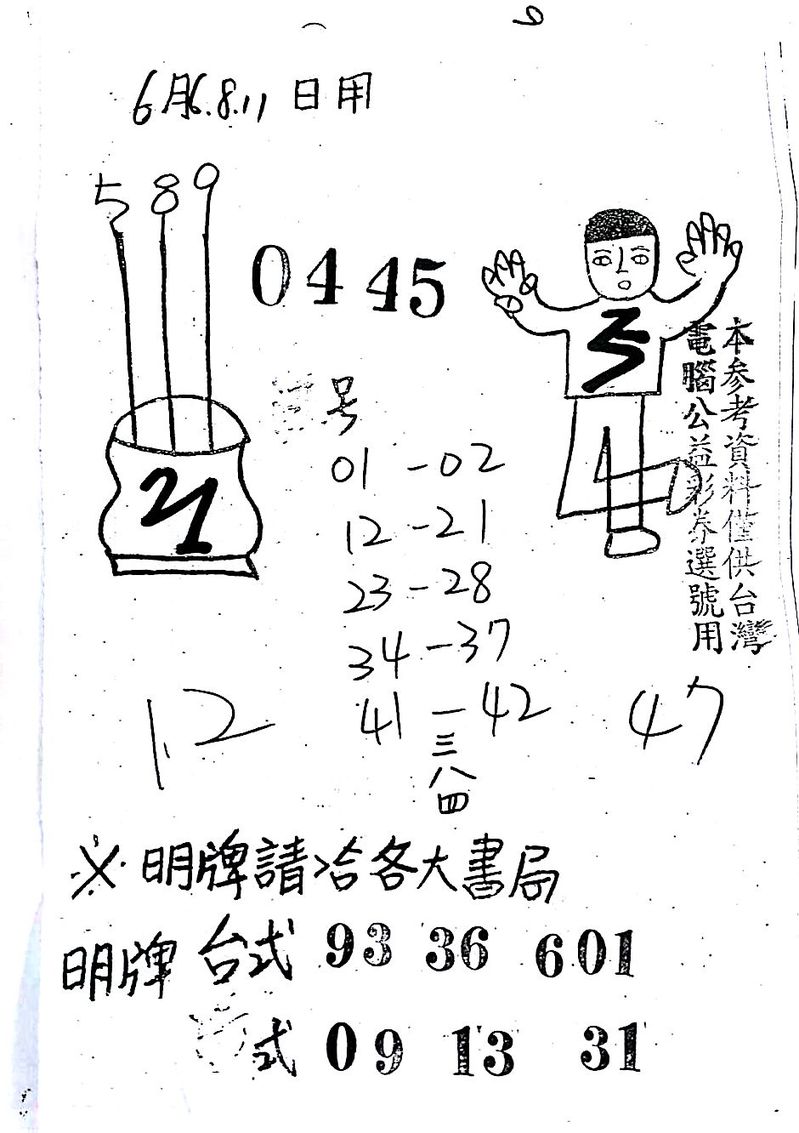 6月6.8.11日用
5 8 9
04 45
21
3
号
01-02
12-21
23-28
34-37
41-42
三
八
四
12
47
本参考資料僅供台灣
電腦公益彩券選號用
※明牌請洽各大書局
明牌 台式 93 36 601
式 09 13 31